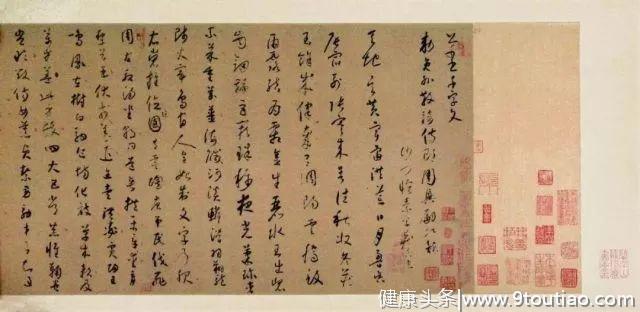 千字文
敕員外散騎侍郎周興嗣次韻
沙門懷素
天地玄黃宇宙洪荒日月盈昃
辰宿列張寒來暑往秋收冬藏
閏餘成歲律呂調陽雲騰致
雨露結為霜金生麗水玉出崑
岡劍號巨闕珠稱夜光菓珍李
柰菜重芥薑海鹹河淡鱗潛羽翔龍
師火帝鳥官人皇始制文字乃服
衣裳推位讓國有虞陶唐弔民伐罪
周發殷湯坐朝問道垂拱平章愛育
黎首臣伏戎羌遐邇壹體率賓歸王
鳴鳳在樹白駒食場化被草木賴及
萬方蓋此身髮四大五常恭惟鞠養
豈敢毀傷女慕貞潔男效才良知過
健康头条/www.9toutiao.com